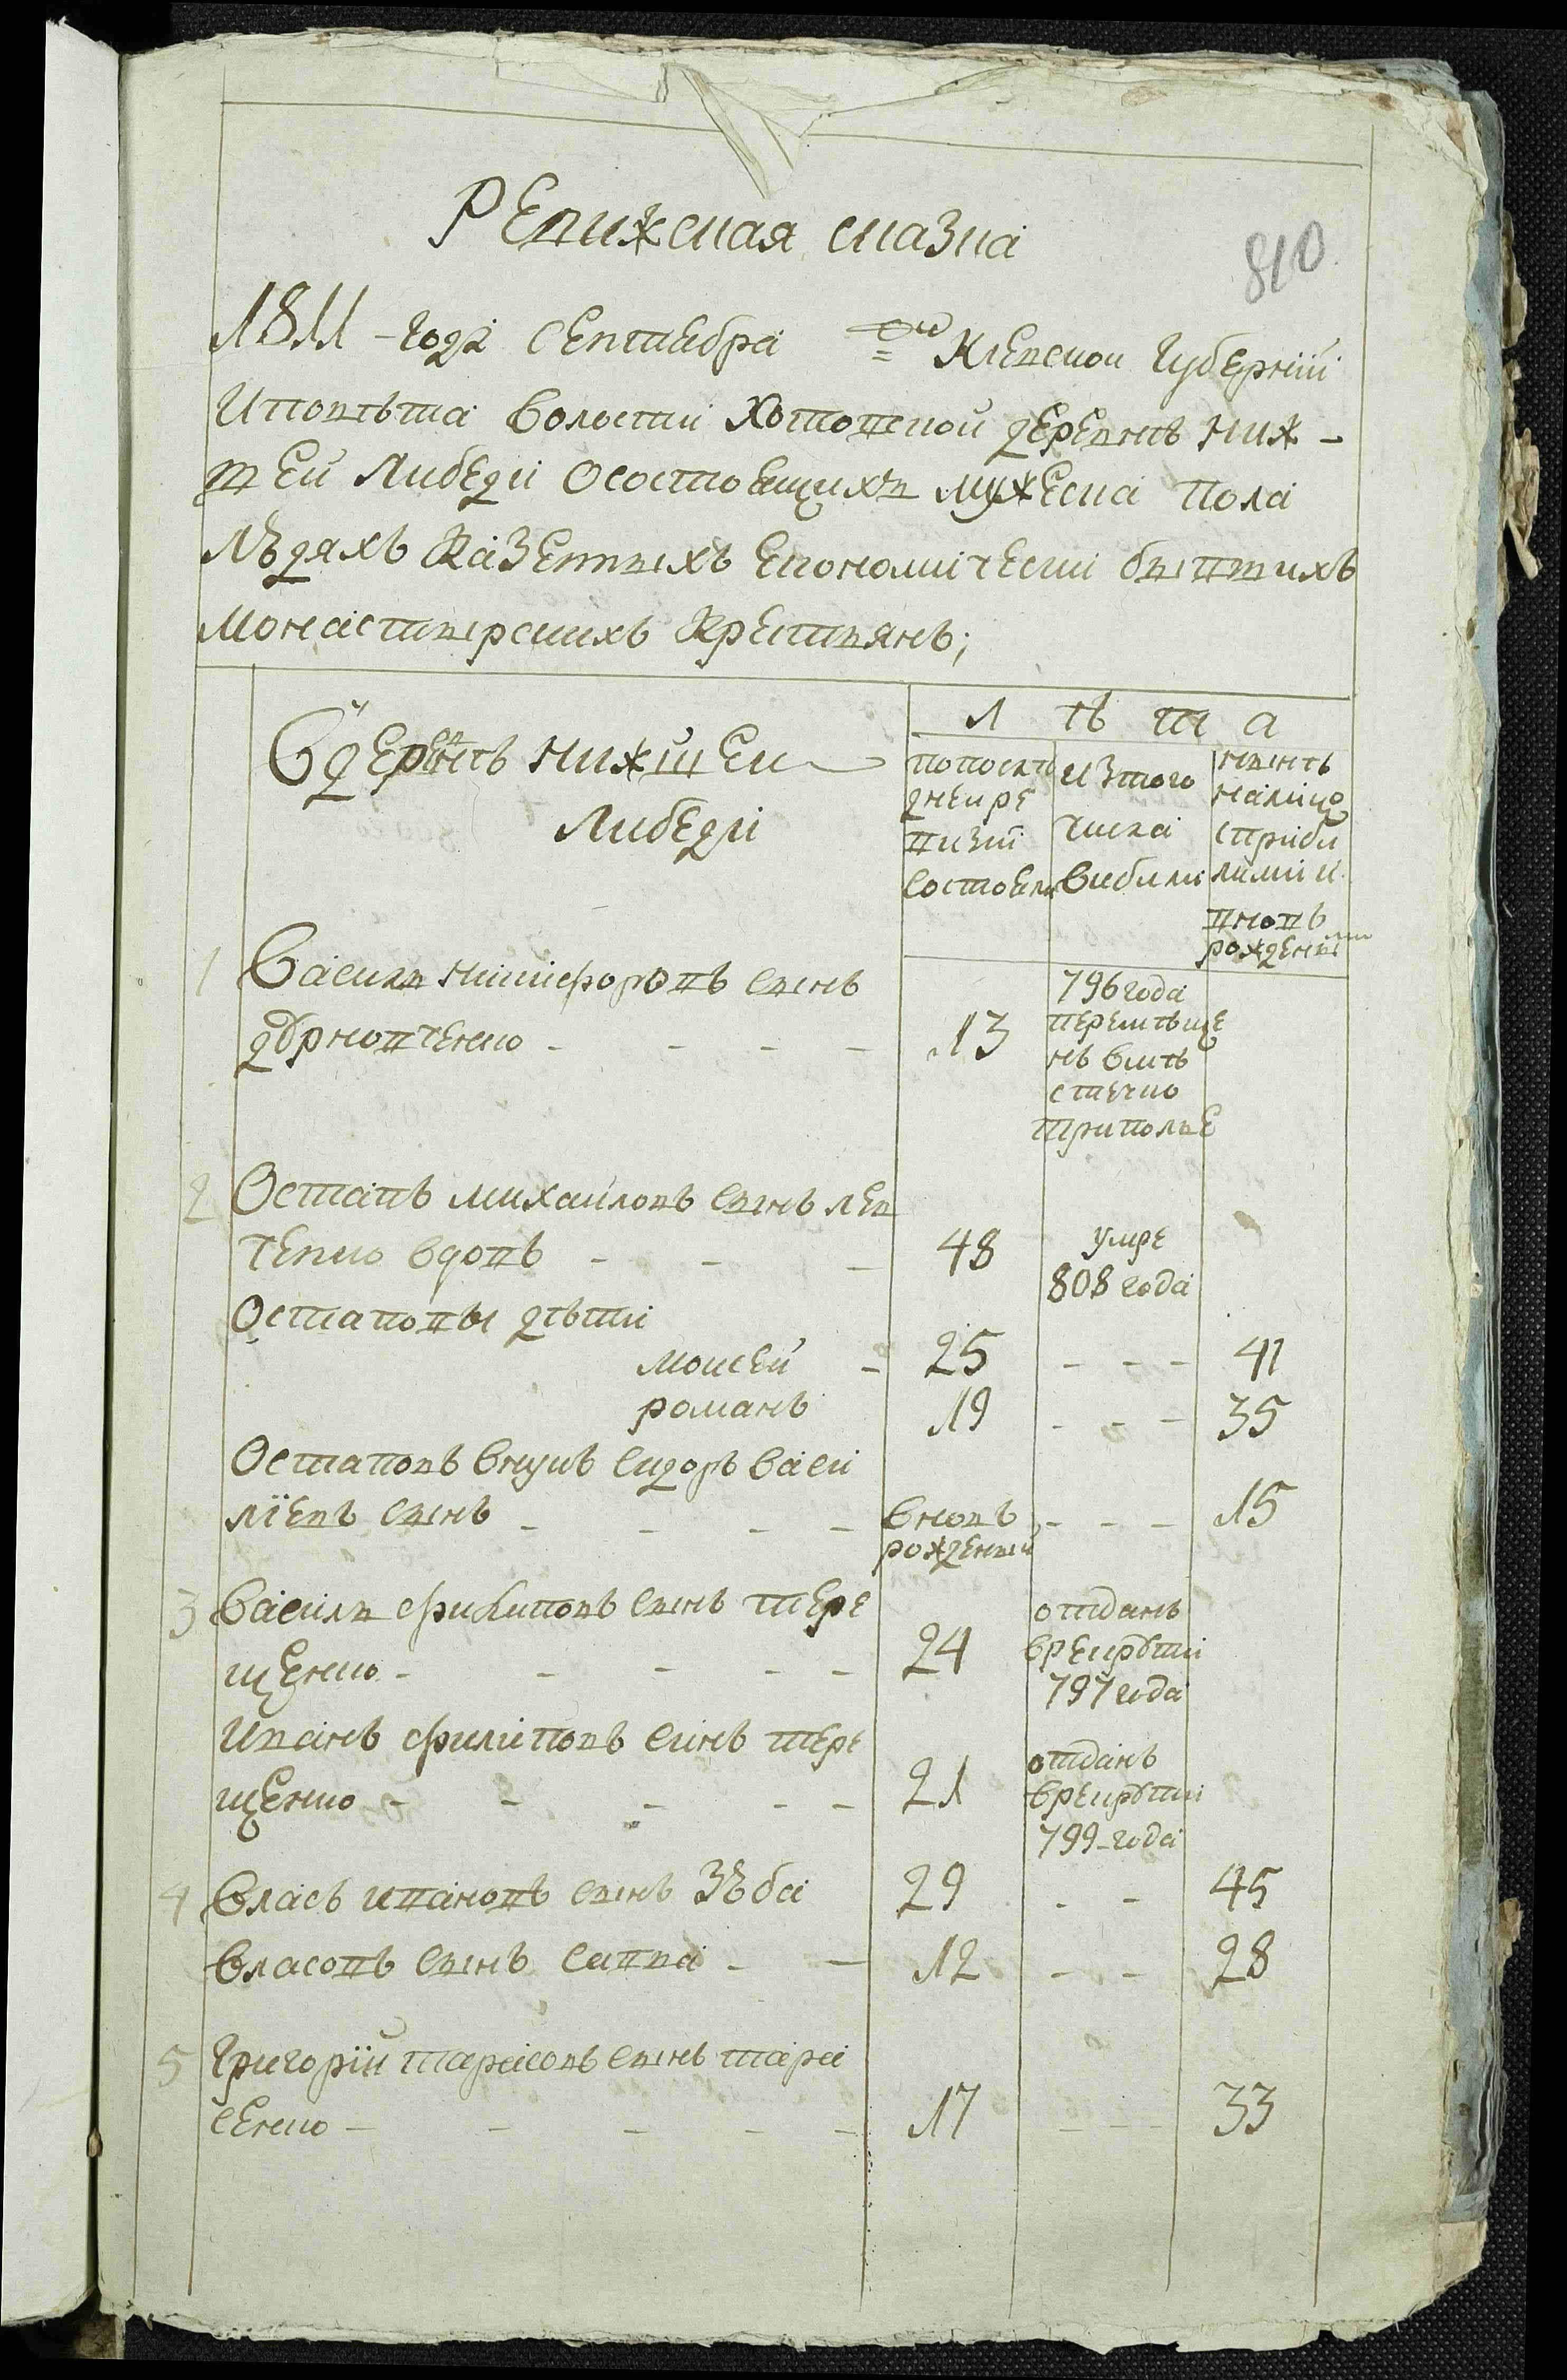 Ревижская сказка
810
1811 - года Сентебра Киевской Губернїй
И повѣта волости Хотовской деревнѣ Ниж -
шей Либеди о состоещихъ мужеска пола
лъдяхъ казенныхъ економически бывшихъ
монастырскихъ крестьянъ;
В деревнѣ Нижшеи
Либеди
Л ѣ т а
по послѣ
дней ре
визїй
состоели
из того
числа
вибили
нынѣ
на лицо
с приби
лими и
вновь
рожденными
1 Василь Никифоровъ сынъ
13
796 года
перемѣще
нъ в мѣ
стечко
Триполье
2 Остапъ Михайловъ сынъ Лев
ченко вдовъ - - - 48
умре
808 года
Остаповы дѣти
Моисей - 25 - - - 41
Романъ 19 - - - 35
Остаповъ внукъ Сидоръ Васи
лїевъ сынъ - - - - вновь рожденый - - - 15
3 Василь Филиповъ сынъ Тере
щенко - - - - - 24
отданъ
в рекруты
797 года
Иванъ Филиповъ синъ Тере
щенко - - - - - 21
отданъ
в рекруты
799 - года
4 Власъ Ивановъ сынъ Зъба 29 - - 45
Власовъ сынъ Савва - - 12 - - 28
5 Григорїй Тарасовъ сынъ Тара
сенко - - - - - 17 - - - 33